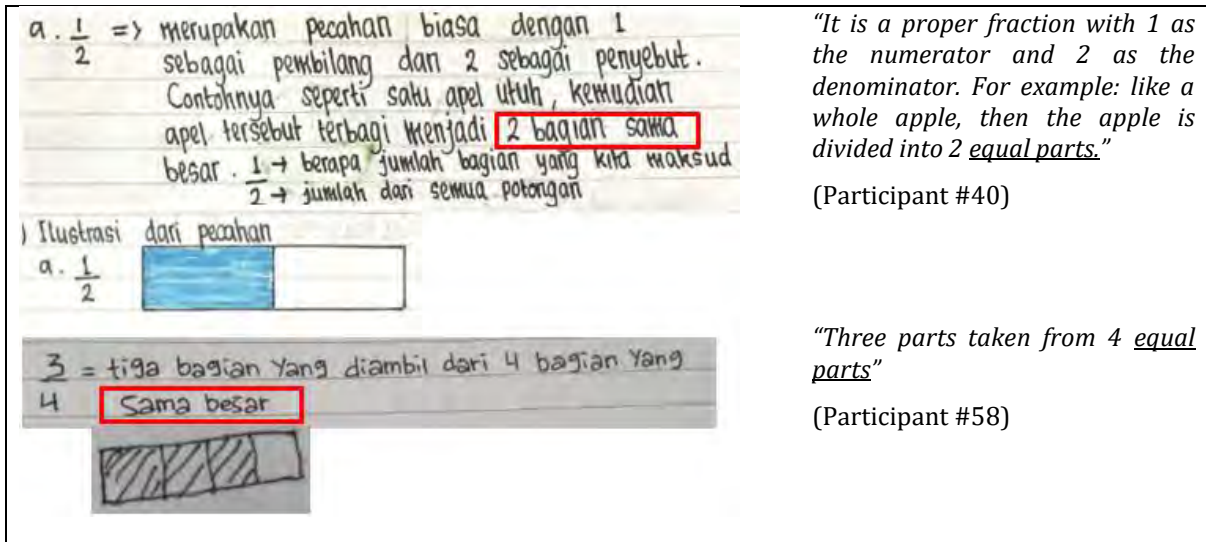 a. 1/2 => merupakan pecahan biasa dengan 1
sebagai pembilang dan 2 sebagai penyebut.
Contohnya seperti satu apel utuh, kemudian
apel tersebut terbagi menjadi 2 bagian sama
besar. 1/2 → berapa jumlah bagian yang kita maksud
→ jumlah dari semua potongan
) Ilustrasi dari pecahan
a. 1/2
3/4 = tiga bagian Yang diambil dari 4 bagian Yang
Sama besar
“It is a proper fraction with 1 as
the numerator and 2 as the
denominator. For example: like a
whole apple, then the apple is
divided into 2 equal parts.”
(Participant #40)
“Three parts taken from 4 equal
parts”
(Participant #58)